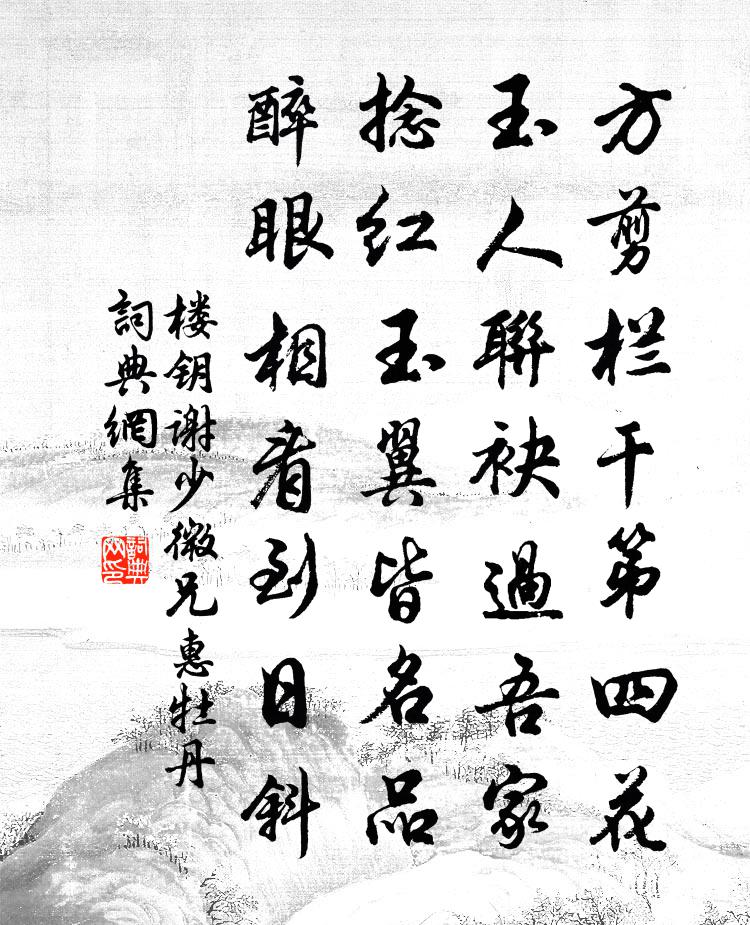 方剪栏干第四花
玉人聯袂過吾家
捻红玉翼皆名品
醉眼相看到日斜
楼钥谢少微兄惠牡丹
詞典網集
詞典
网印